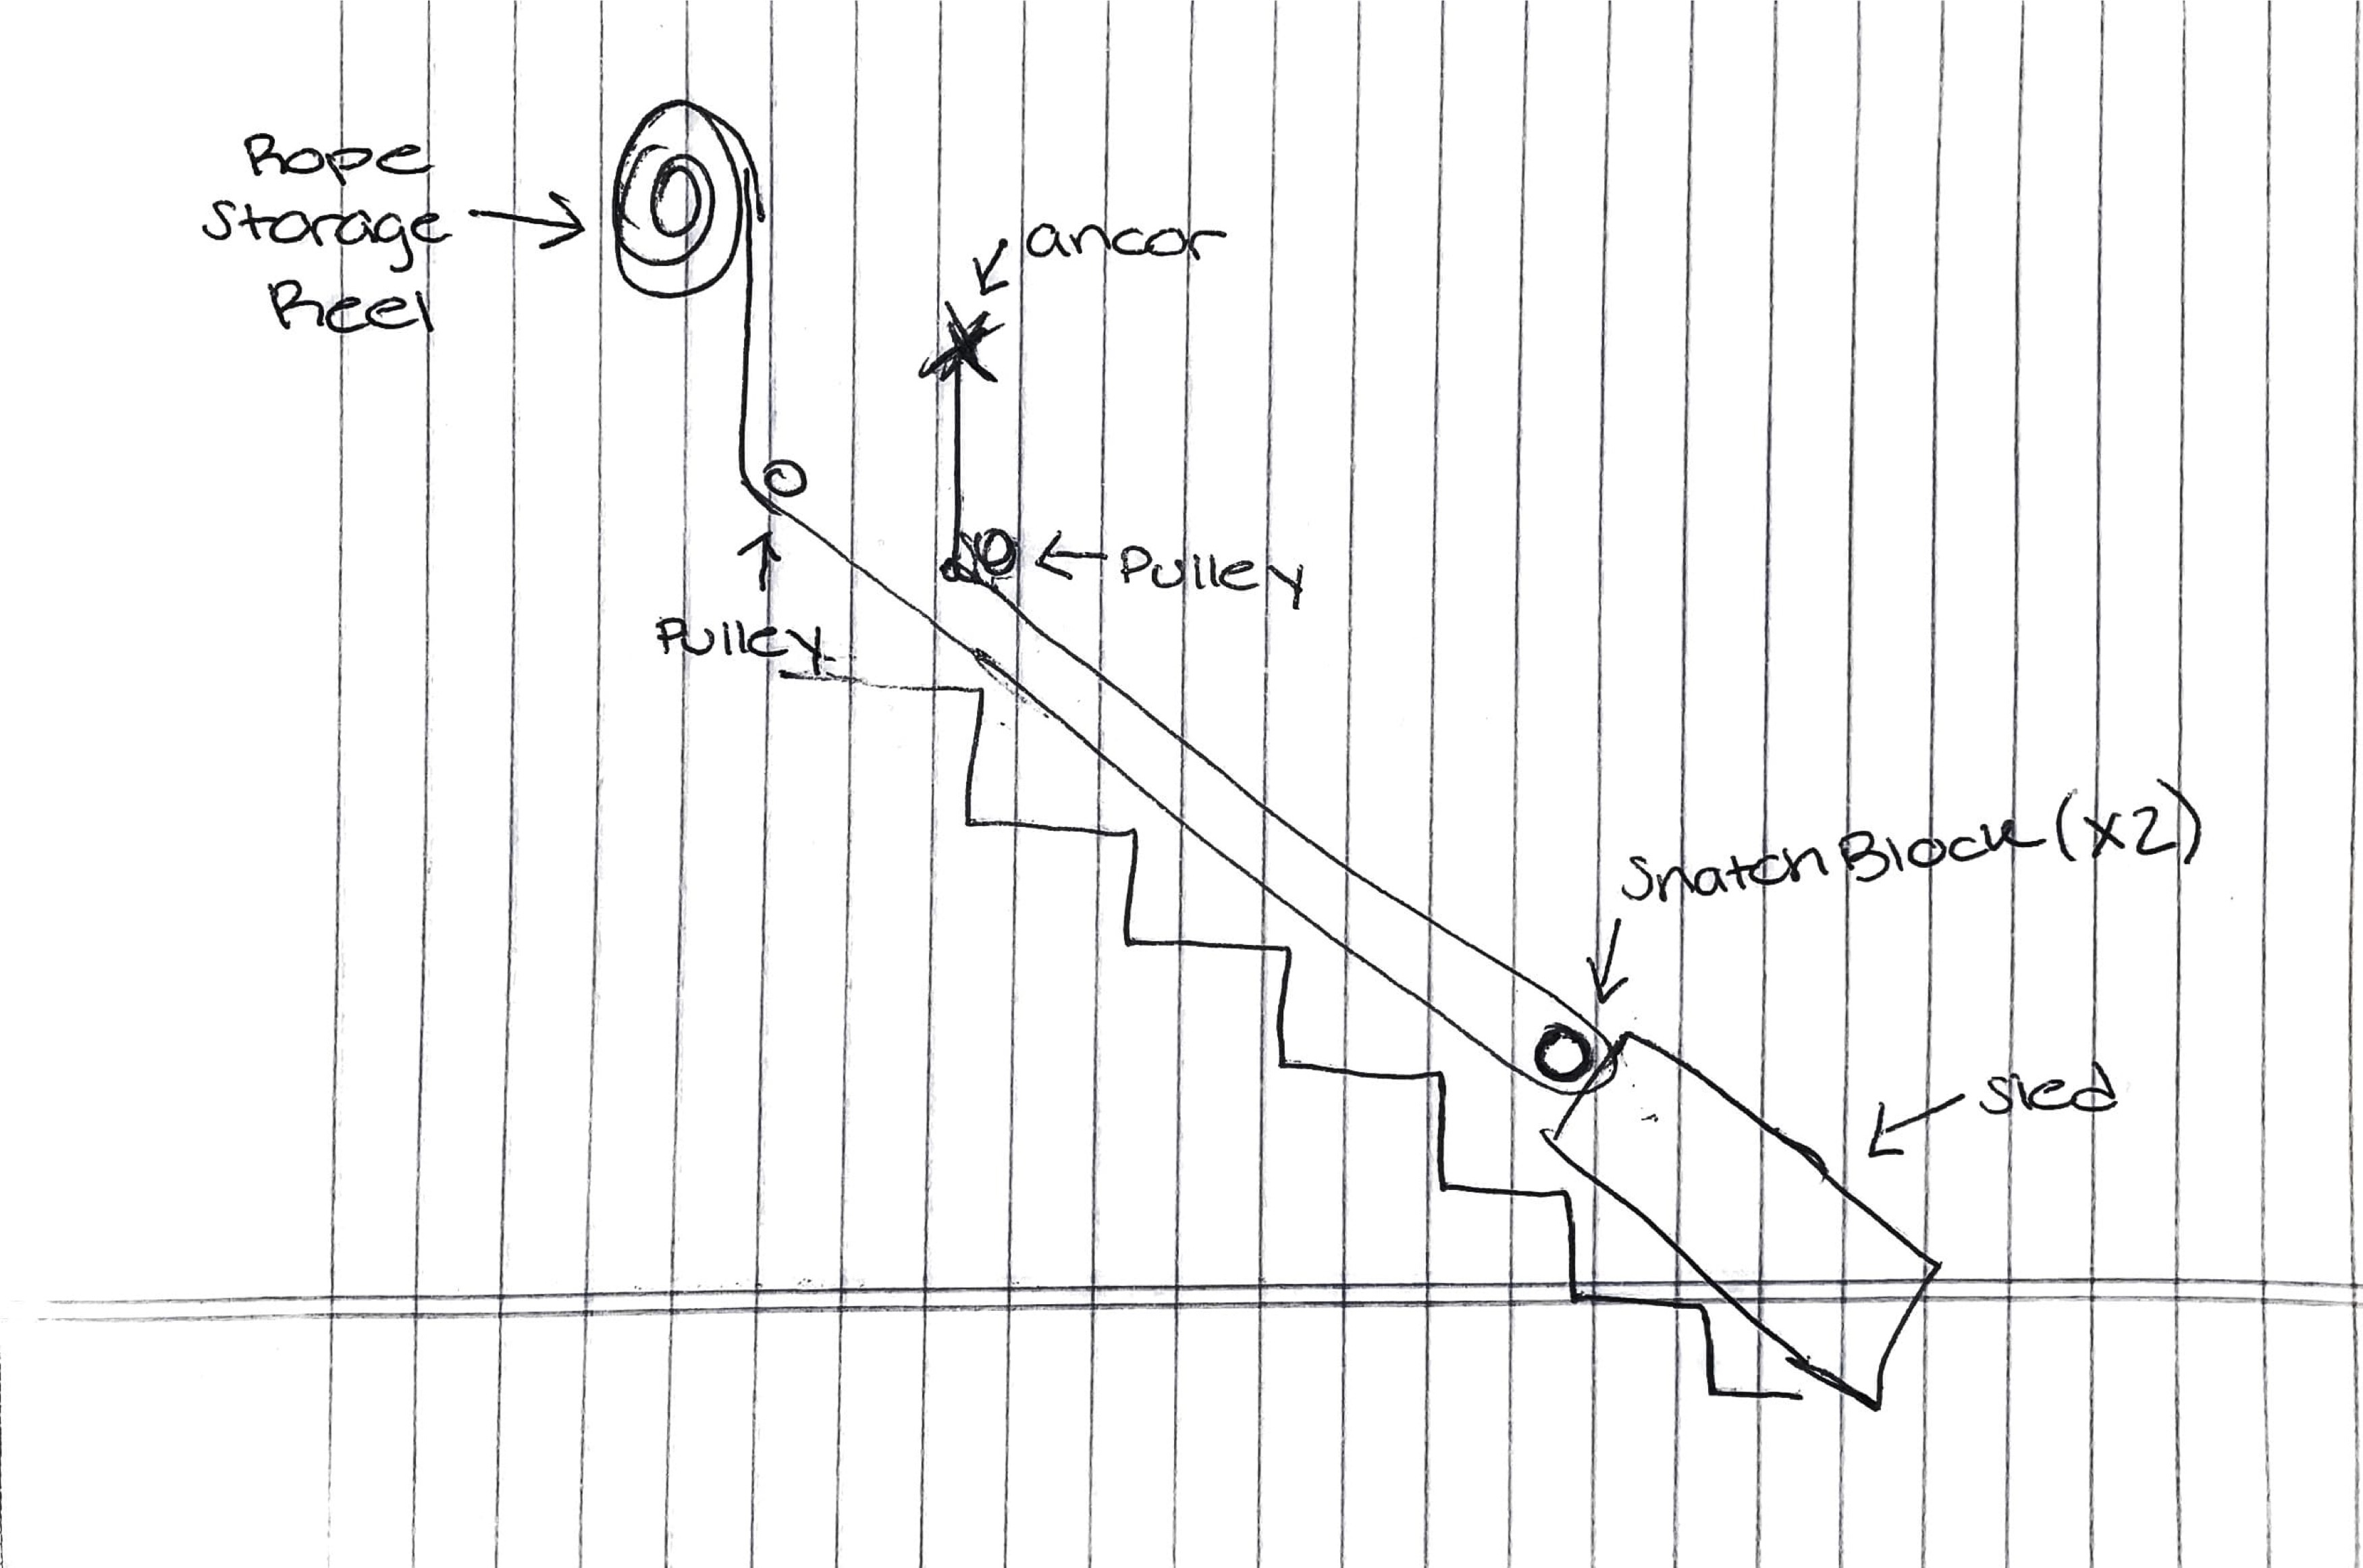 Rope
Storage
Reel
ancor
Pulley
Pulley
Snatch Block (x2)
sled